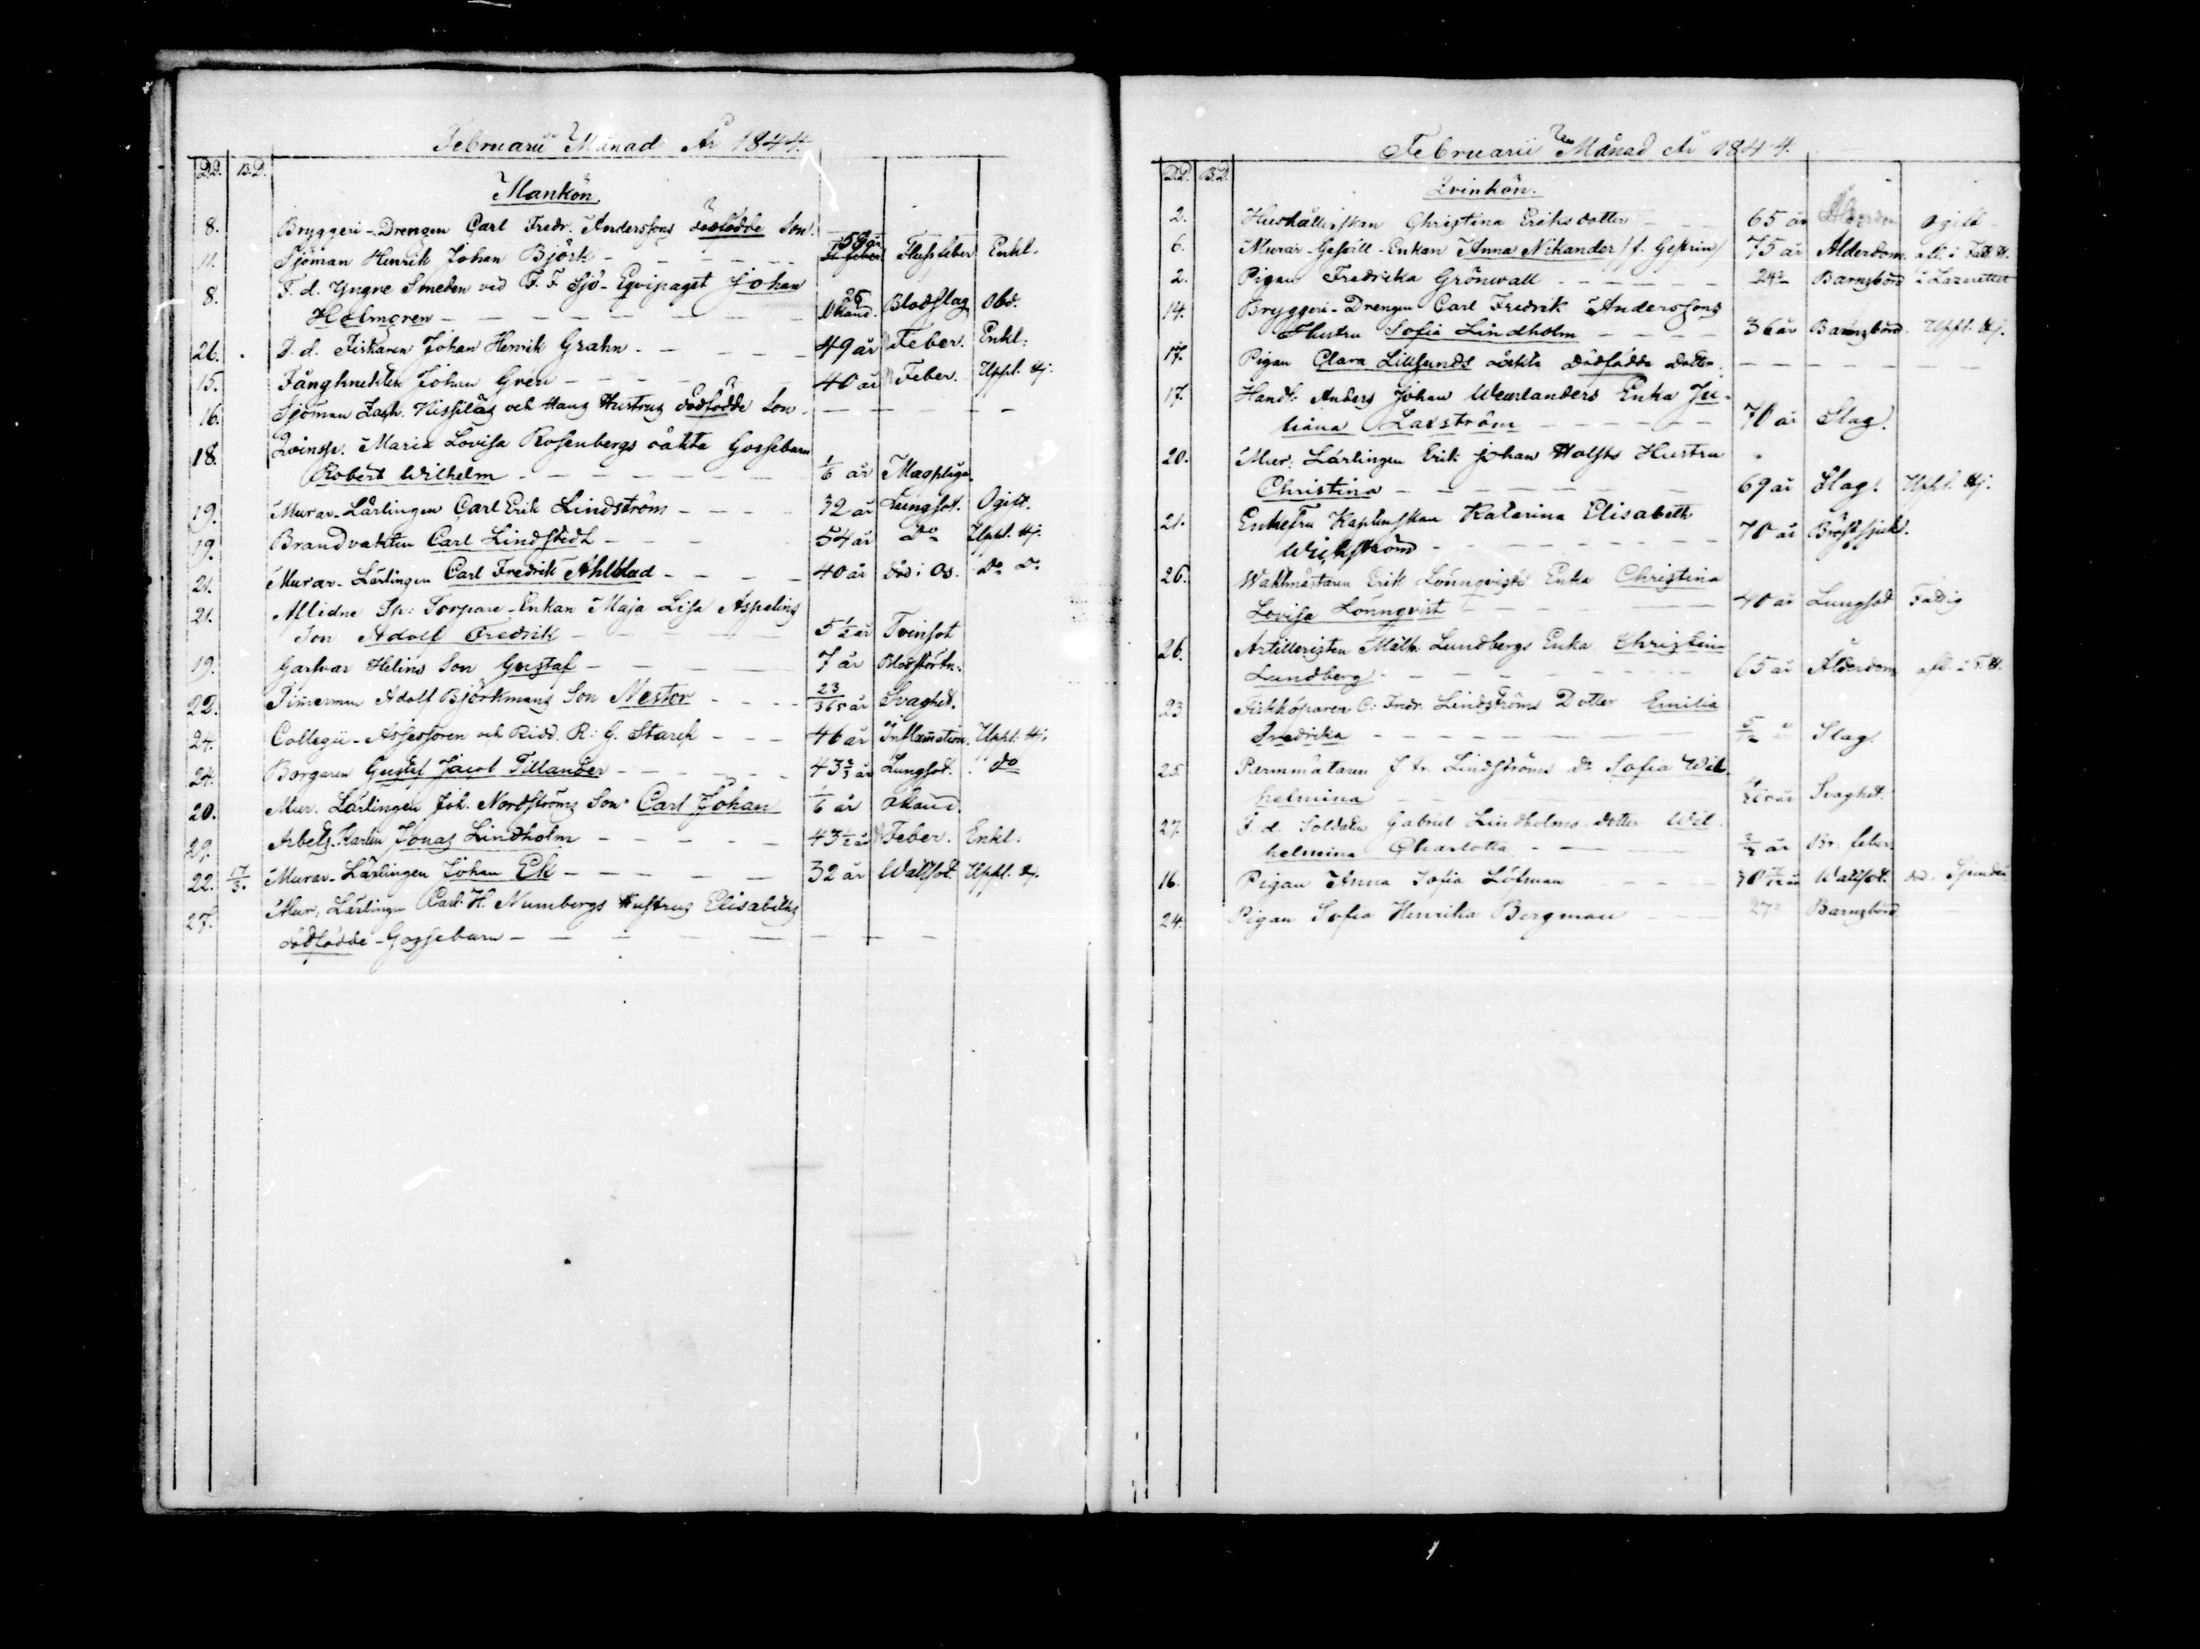 Februarii Månad År 1844.
D.D. B.D.
Mankön.
8. Bryggeri-Drengen Carl Fredr. Anderssons dödfödde Son.
11. Sjöman Henrik Johan Björk 58 år Enkl.
8. F. d. Yngre Smeden vid F. F. Sjö-Eqvipaget Johan
Holmgren Okänd. Blodslag Obd.
21. F. d. Fiskaren Johan Henrik Grahn 49 år Feber. Enkl.
15. Fångknekten Johan Gren 40 år Feber. Uppl. Hj.
16. Sjöman Hans Hustrus dödfödde Son
18. Qvinsp. Maria Lovisa Rosenbergs oäkta Gossebarn
Robert Wilhelm 1/6 år Magplåga.
19. Murar-Lärlingen Carl Erik Lindström 32 år Lungsot. Ogift.
19. Brandvakten Carl Lindstedt 54 år Do Uppl. Hj.
21. Murar-Lärlingen Carl Fredrik Ahlblad 40 år Do Do
21. Allidne Sp: Torpare-Enkan Maja Lisa Aspelins
Son Adolf Fredrik 5 1/2 år Tvinsot
19. Garfvar Helins Son Gustaf 7 år
22. Timerman Adolf Björkmans Son Nestor 23/365 år Svaghet.
24. Collegii-Assessoren och Ridd. R: G. Starck 46 år Inflamation. Uppl. Hj.
24. Borgaren Gustaf Jacob Tillander 43 2/3 år Lungsot. " do
20. Mur. Lärlingen Joh. Nordströms Son Carl Johan 1/6 år Okänd.
29. Arbets-Karlen Jonas Lindholm 43 1/2 år Feber. Enkl.
22. 17/3. Murar-Lärlingen Johan Ek 32 år Wattsot. Uppl. Hj.
27. Mur. Lärlingen Carl H. Numbergs Hustrus Elisabeths
dödfödde Gossebarn
Februarii Månad År 1844.
D.D. B.D.
Qvinkön.
2. Hushållerskan Christina Eriksdotter 65 år Ålderdom Ogift
6. Murar-Gesäll-Enkan Anna Nikander 75 år Ålderdom.
2. Pigan Fredrika Grönwall Barnsbörd i Lazarettet
14. Bryggeri-Drengen Carl Fredrik Anderssons
Hustru Sofia Lindholm 36 år Barnsbörd. Uppl. Hj.
17. Pigan Clara Lillsunds oäkta dödfödda dotter
17. Handl. Anders Johan Wenrlanders Enka Ju-
liana Laxström 70 år Slag.
20. Mur: Lärlingen Erik Johan Holsts Hustru
Christina 69 år Slag. Uppl. Hj.
21. Enkefru Kaplanskan Katarina Elisabeth
Wickström 70 år Bröstsjukd.
26. Waktmästaren Erik Lönnqvists Enka Christina
Lovisa Lönnqvist 40 år Lungsot Fattig
26. Artilleristen Math: Lundbergs Enka Christina
Lundberg 65 år Ålderdom
23 Fiskköparen C: Fredr. Lindströms Dotter Emilia
Fredrika 5/12 år Slag.
25. Lindströms Do Sofia Wil-
helmina Svaghet.
27. F. d. Soldaten Gabriel Lindholms dotter Wil-
helmina Charlotta år Br. feber.
16. Pigan Anna Sofia Löfman Wattsot.
24. Pigan Sofia Henrika Bergman 27 Barnsbörd